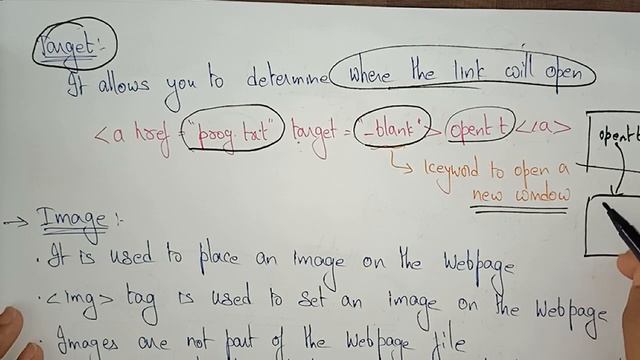 Target:-
It allows you to determine where the link will open
<a href = "prog.txt" target = "-blank"> opent t </a>
↳ keyword to open a
new window
opent t
→ Image :-
. It is used to place an image on the Webpage
. <img> tag is used to set an image on the Webpage
. Images are not part of the Webpage file